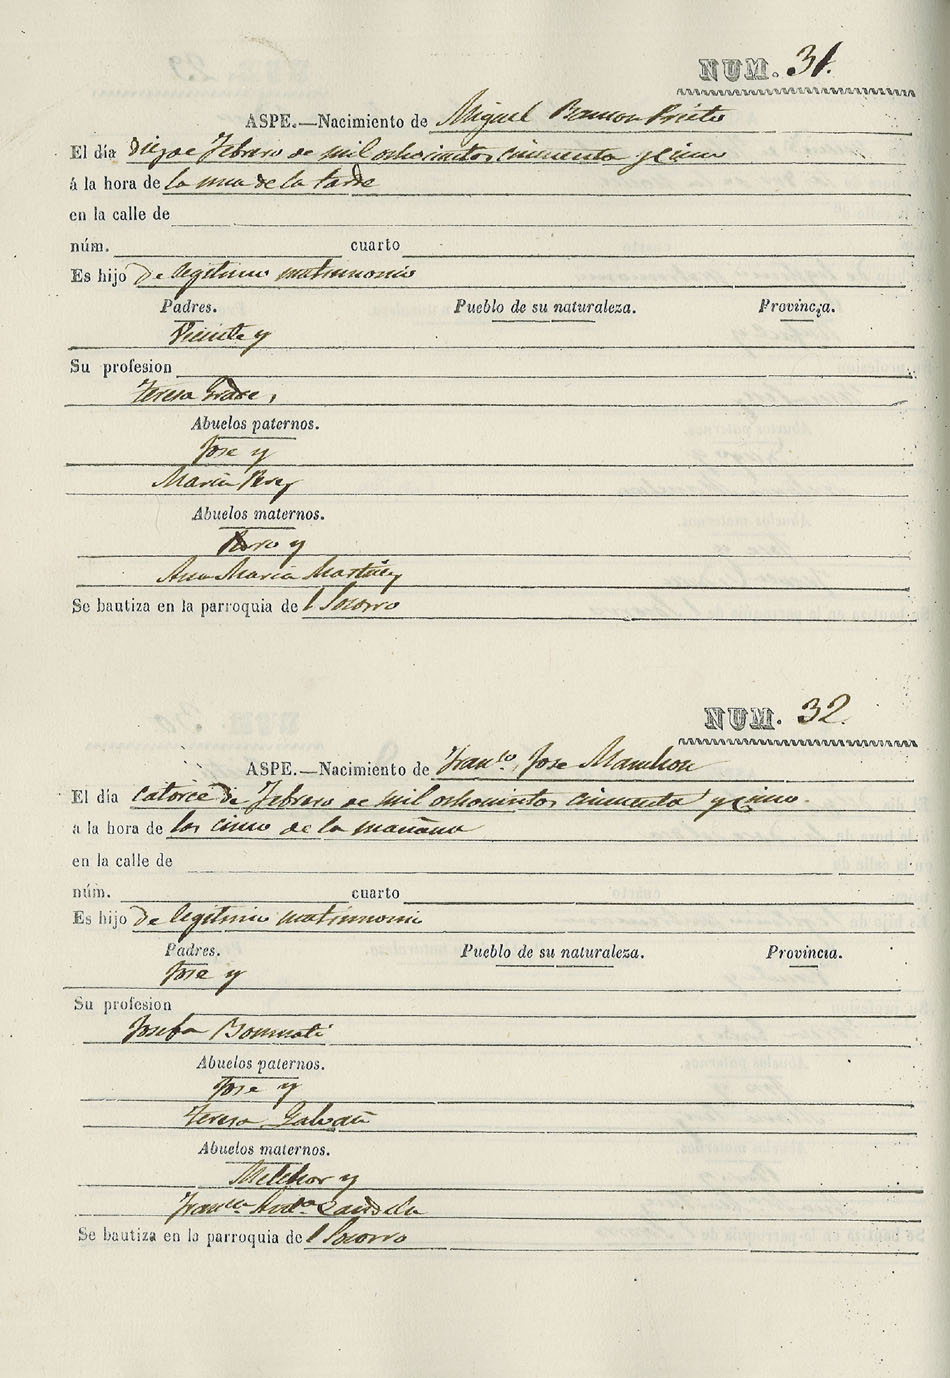 NUM. 31.
ASPE.—Nacimiento de Miguel Ramon Prieto
El día diez de Febrero de mil ochocientos cincuenta y cinco
á la hora de la una de la tarde
en la calle de
núm. cuarto
Es hijo de legitimo matrimonio
Padres. Pueblo de su naturaleza. Provincia.
Vicente y
Su profesion
Teresa
Abuelos paternos.
Jose y
Maria Perez
Abuelos maternos.
y
Ana Maria Martinez
Se bautiza en la parroquia de l Socorro
NUM. 32.
ASPE.—Nacimiento de Fran.co Jose Manchon
El día catorce de Febrero de mil ochocientos cincuenta y cinco.
a la hora de las cinco de la mañana
en la calle de
núm. cuarto
Es hijo de legitimo matrimonio
Padres. Pueblo de su naturaleza. Provincia.
Jose y
Su profesion
Josefa Bonmati
Abuelos paternos.
Jose y
Teresa Galvañ
Abuelos maternos.
Melchor y
Fran.ca
Se bautiza en la parroquia de l Socorro